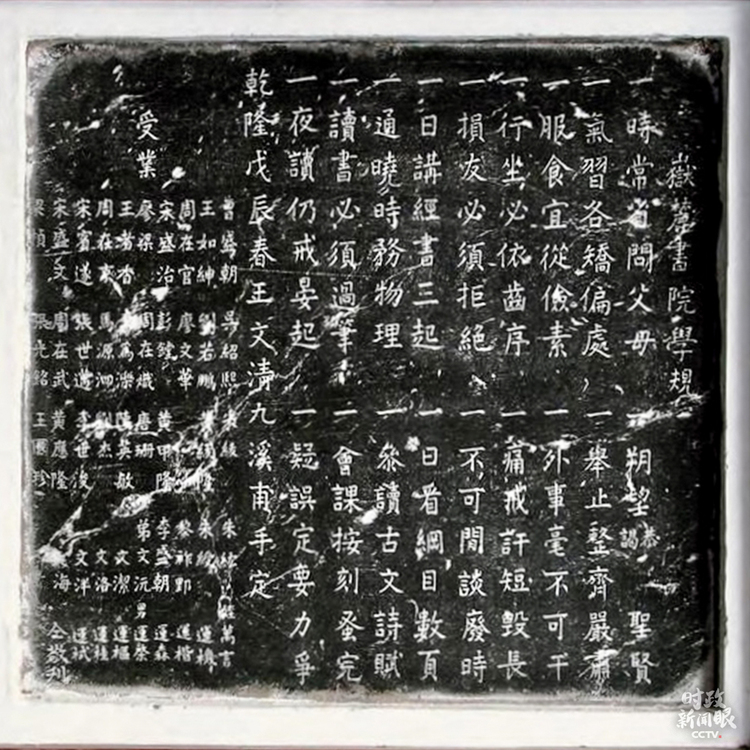 嶽麓書院學規
一時常省問父母 一朔望恭謁聖賢
一氣習各矯偏處 一舉止整齊嚴肅
一服食宜從儉素 一外事毫不可干
一行坐必依齒序 一痛戒訐短毀長
一損友必須拒絕 一不可閒談廢時
一日講經書三起 一日看綱目數頁
一通曉時務物理 一參讀古文詩賦
一讀書必須過筆 一會課按刻蚤完
一夜讀仍戒晏起 一疑誤定要力爭
乾隆戊辰春王文清九溪甫手定
受業
曾盛朝 吳紹熙
王如紳 劉若鵬
周在官 廖文華
宋盛治 黃甲隆 李盛朝 運森
廖梁 周在熾 唐珊 弟文沅 男運榮
文潔
馬源泗 文洛 運桂
宋賓遂 張世遘 李世俊 文洋 運斌
宋盛文 周在武 黃應隆
梁楨 王國珍 仝敬刊
时政
新闻眼
CCTV